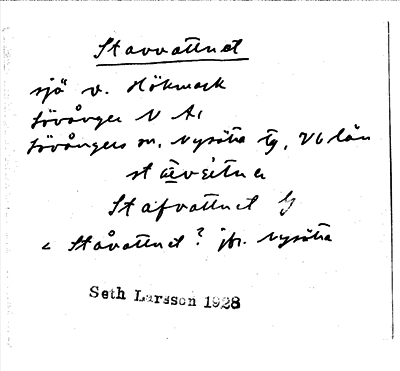 Stavvattnet
sjö v. Hökmark
Lövånger N A1
Lövångers sn, Nysätra tg, Vb län
Stafvattnet G
< Ståvattnet? jfr. Nysätra
Seth Larsson 1928